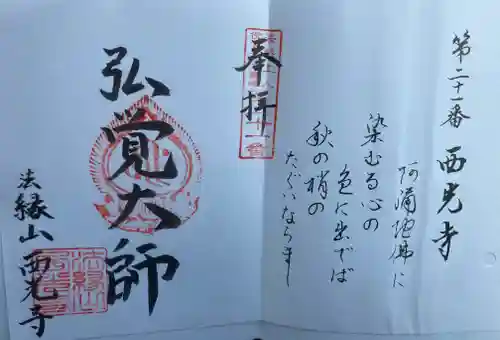 第二十一番 西光寺
阿満地佛に
染むる心の
色に出でば
秋の梢の
たぐいならまし
奉拝
弘覚大師
法縁山西光寺